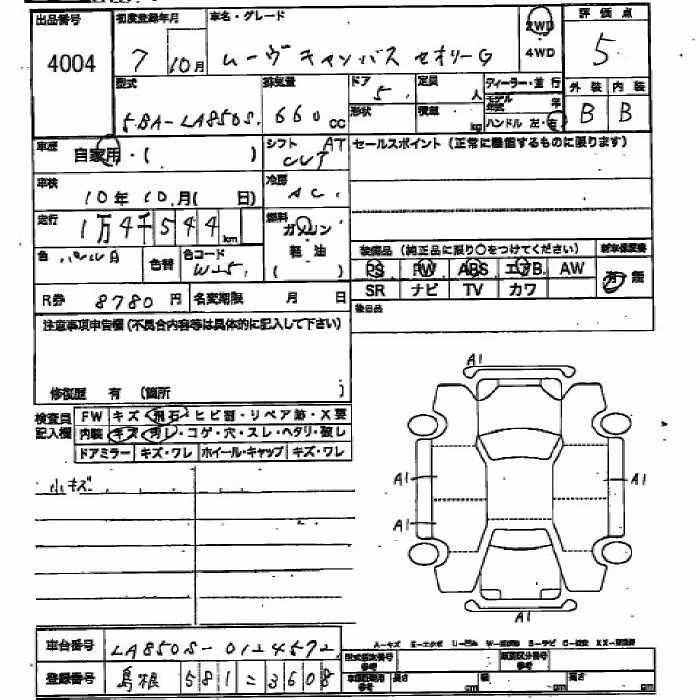 出品番号 初度登録年月 車名・グレード 2WD 評価点
4004 7 10月 ムーヴキャンバス セオリーG 4WD 5
型式 排気量 ドア 定員 ディーラー・並行 外装 内装
5BA-LA850S. 660cc 5. 人 モデル年式 年 B B
形状 積載 kg ハンドル 左・右
車歴 自家用・( ) シフト AT セールスポイント(正常に機能するものに限ります)
CVT
車検 冷房
10年10月( 日) AC.
走行 1万4千544km 燃料 ガソリン
軽油
( )
色 パール白 色替 色コード W25. 装備品(純正品に限り○をつけてください) 新車保証書
PS PW ABS エアB. AW 有 無
R券 8780円 名変期限 月 日 SR ナビ TV カワ
後日品
注意事項申告欄(不具合内容等は具体的に記入して下さい)
修復歴 有 (箇所 )
検査員 FW キズ・飛石・ヒビ割・リペア跡・X要
記入欄 内装 キズ・汚レ・コゲ・穴・スレ・ヘタリ・破レ
ドアミラー キズ・ワレ ホイール・キャップ キズ・ワレ
小キズ
A1
A1 A1
A1
A1
車台番号 LA850S-0124572
登録番号 島根 581 こ 3608
A-キズ
長さ cm 幅 cm 高さ cm